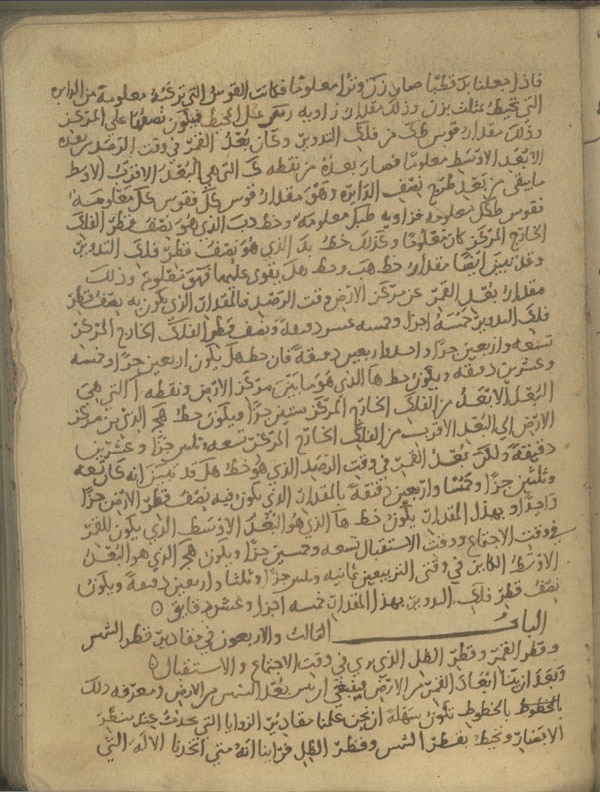 فاذا جعلنا بد قطبا صار زن وترا معلوما فكانت القوس التي توتره معلومة من الدايره
التي تحيط بمثلث بزن وذلك مقدار زاويه على المحيط فيكون نصفها على المركز
وذلك مقدار قوس من فلك التدوير وكان بعد القمر في وقت الرصد من بعده
الابعد الاوسط معلوما فصار بعده من نقطه التي هي البعد الاقرب الاوسط
ما يبقى من بعد طرح نصف الدايره وهو مقدار قوس فقوس معلومة
فقوس معلومه فزاويه طبك معلومة وخط دب الذي هو نصف قطر الفلك
الخارج المركز كان معلوما وكذلك خط بك الذي هو نصف قطر فلك التدوير
وقد تبين ايضا مقدار خط هب وخط هك يقوى عليهما فهو معلوم وذلك
مقدار بعد القمر عن مركز الارض وقت الرصد فالمقدار الذي يكون به نصف قطر
فلك التدوير خمسة اجزا وخمسه عشر دقيقة ونصف قطر الفلك الخارج المركز
تسعه واربعين جزا واحدا واربعين دقيقة فان خط هك يكون اربعين جزا وخمسه
وعشرين دقيقه ويكون خط ها الذي هو ما بين مركز الارض ونقطه ا التي هي
البعد الابعد من الفلك الخارج المركز ستين جزا ويكون خط هج الذي من مركز
الارض الى البعد الاقرب من الفلك الخارج المركز تسعه وثلثين جزا وعشرين
دقيقة ولكن بعد القمر في وقت الرصد الذي هو خط هك قد تبين انه كان تسعه
وثلثين جزا وخمسا واربعين دقيقة بالمقدار الذي يكون فيه نصف قطر الارض جزا
واحدا وبهذا المقدار يكون خط ها الذي هو البعد الاوسط الذي يكون للقمر
في وقت الاجتماع ووقت الاستقبال تسعه وخمسين جزا ويكون هج الذي هو البعد
الاوسط الكاين في وقتي التربيعين ثمانيه وثلثين جزا وثلثا واربعين دقيقة ويكون
نصف قطر فلك التدوير بهذا المقدار خمسه اجزا وعشر دقايق
الباب الثالث والاربعون في مقادير قطر الشمس
وقطر القمر وقطر الظل الذي يرى في وقت الاجتماع والاستقبال
وبعد ان بينا ابعاد القمر من الارض فينبغي ان نبين بعد الشمس من الارض ومعرفه ذلك
بالخطوط يكون سهلة ان نحن علمنا مقادير الزوايا التي تحدث عند منظر
الابصار وتحيط بقطر الشمس وقطر الظل فراينا انه متى اتخذنا الاله التي